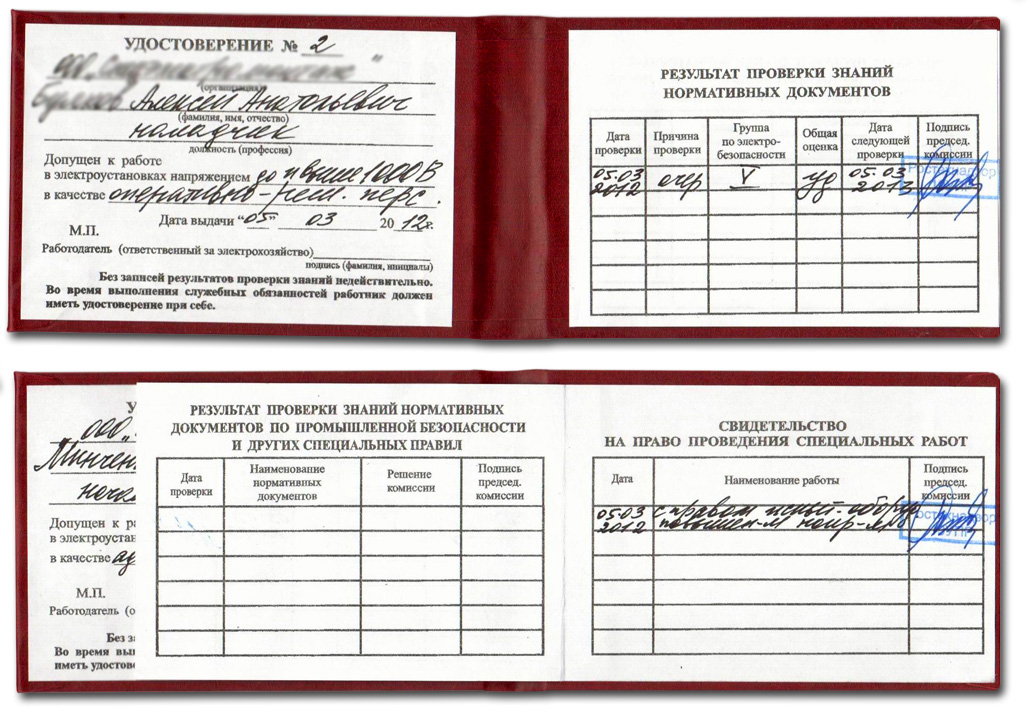 УДОСТОВЕРЕНИЕ № 2
(организация)
Алексей Анатольевич
(фамилия, имя, отчество)
наладчик
должность (профессия)
Допущен к работе
в электроустановках напряжением до и выше 1000 В
в качестве оперативно-рем. перс.
Дата выдачи "05" 03 2012г.
М.П.
Работодатель (ответственный за электрохозяйство)
подпись (фамилия, инициалы)
Без записей результатов проверки знаний недействительно.
Во время выполнения служебных обязанностей работник должен
иметь удостоверение при себе.
РЕЗУЛЬТАТ ПРОВЕРКИ ЗНАНИЙ
НОРМАТИВНЫХ ДОКУМЕНТОВ
Дата проверки Причина проверки Группа по электро-безопасности Общая оценка Дата следующей проверки Подпись председ. комиссии
05.03 2012 очер V уд 05.03 2013
У
ООО "
Минчен
нача
Допущен к ра
в электроустан
в качестве ад
М.П.
Работодатель (о
Без за
Во время вып
иметь удостове
РЕЗУЛЬТАТ ПРОВЕРКИ ЗНАНИЙ НОРМАТИВНЫХ
ДОКУМЕНТОВ ПО ПРОМЫШЛЕННОЙ БЕЗОПАСНОСТИ
И ДРУГИХ СПЕЦИАЛЬНЫХ ПРАВИЛ
Дата проверки Наименование нормативных документов Решение комиссии Подпись председ. комиссии
СВИДЕТЕЛЬСТВО
НА ПРАВО ПРОВЕДЕНИЯ СПЕЦИАЛЬНЫХ РАБОТ
Дата Наименование работы Подпись председ. комиссии
05.03 с правом испыт. оборуд
2012 повышен-м напр-м